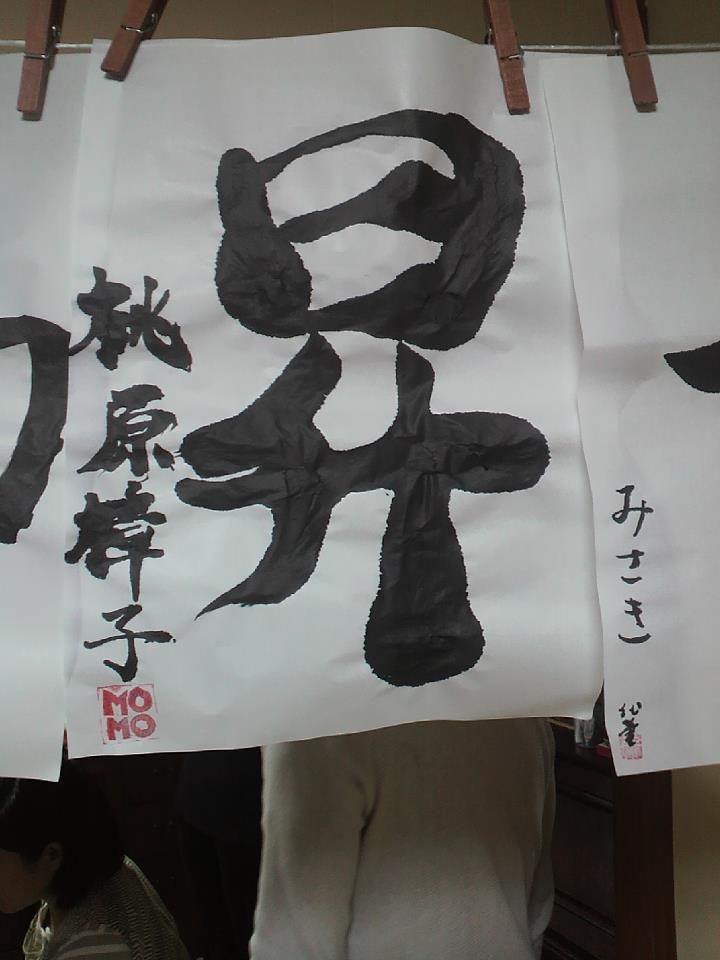 昇
桃原樟子
MO
MO
みさき